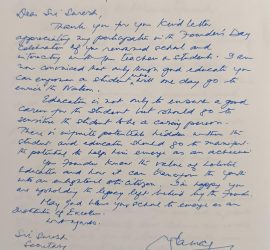 Dear Sri Suresh,
Thank you for your kind letter
appreciating my participation with Founder's Day
Celebration of your renowned school and
interacting with your teachers & students. I am
convinced that only through good education you
can empower a student who will one day go to
enrich the Nation.
Education is not only to ensure a good
career for the student but should go to
sensitise the student to be a caring person.
There is infinite potential hidden within the
student and education should go to manifest
the potential of help him emerge as an achiever
Your Founder knew the value of holistic
Education and how it can transform the youth
into an enlightened citizen. I'm happy you
are upholding the legacy left behind by the Founder.
May God bless your school to emerge as an
Institute of Excellence.
Sri Suresh
Secretary